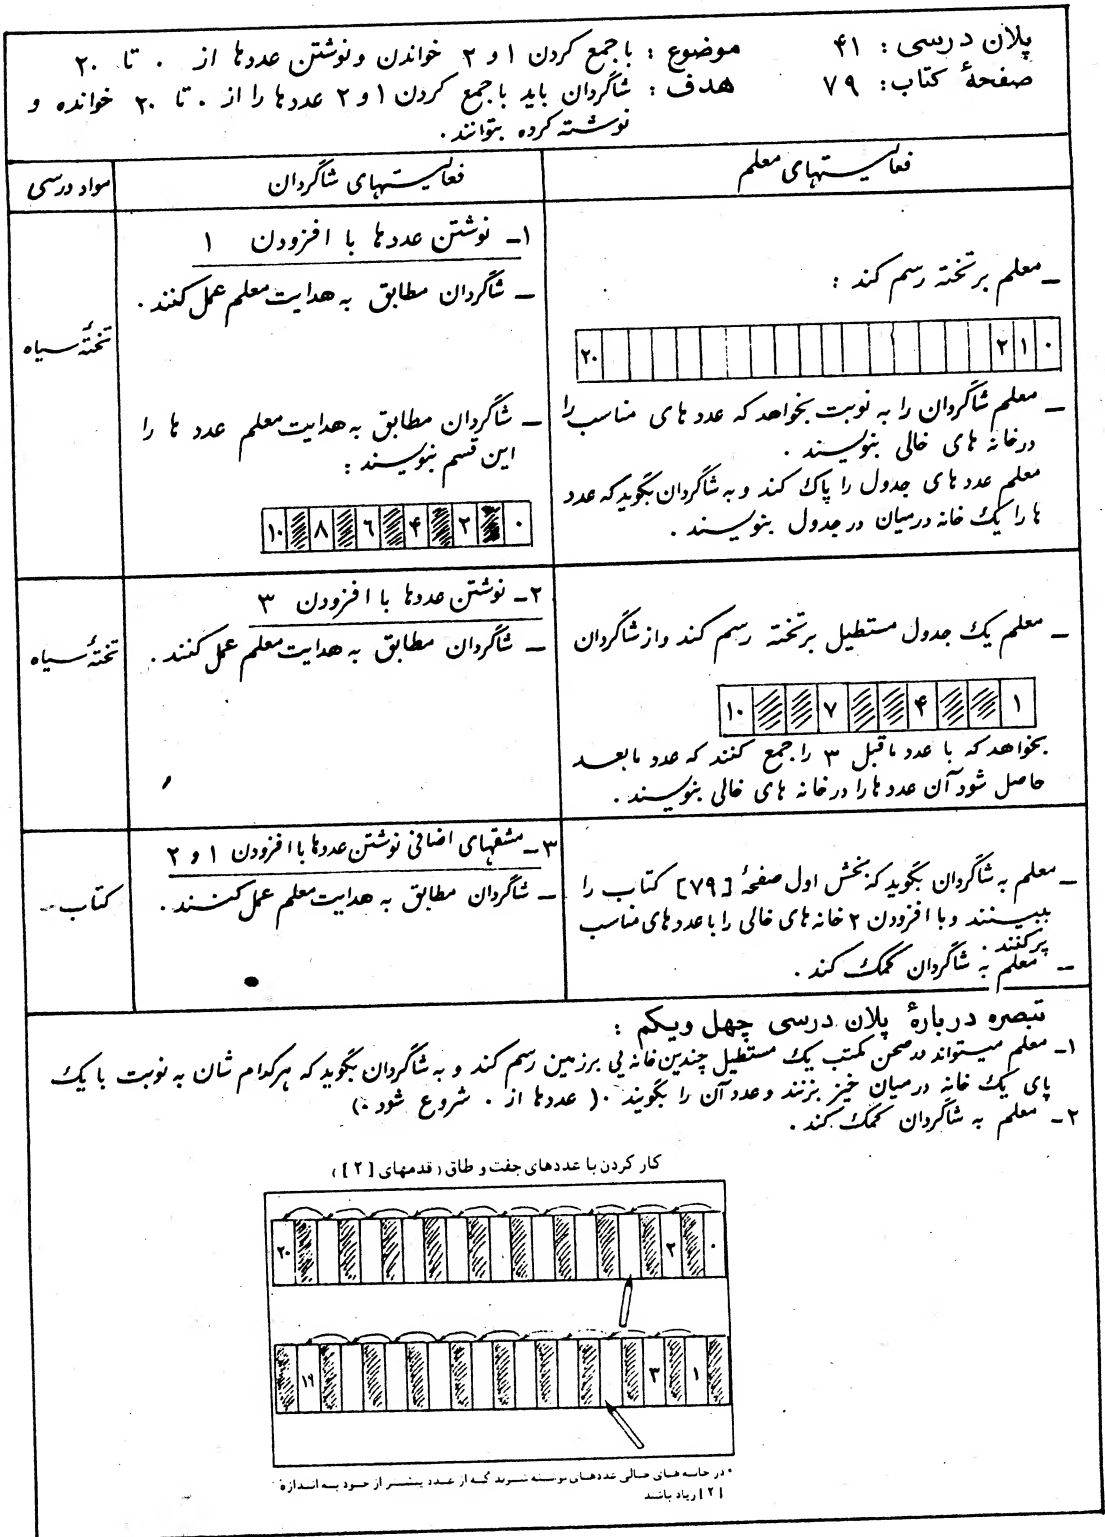 پلان درسی: ۴۱
صفحهٔ کتاب: ۷۹
موضوع: با جمع کردن ۱ و ۲ خواندن و نوشتن عددها از ۰ تا ۲۰
هدف: شاگردان باید با جمع کردن ۱ و ۲ عددها را از ۰ تا ۲۰ خوانده و
نوشته کرده بتوانند.
فعالیتهای معلم
فعالیتهای شاگردان
مواد درسی
ـ معلم بر تخته رسم کند:
۰ ۱ ۲ ۲۰
ـ معلم شاگردان را به نوبت بخواهد که عدد های مناسب را
در خانه های خالی بنویسند.
معلم عدد های جدول را پاک کند و به شاگردان بگوید که عدد
ها را یک خانه درمیان در جدول بنویسند.
۱ـ نوشتن عددها با افزودن ۱
ـ شاگردان مطابق به هدایت معلم عمل کنند.
ـ شاگردان مطابق به هدایت معلم عدد ها را
این قسم بنویسند:
۰ ۲ ۴ ۶ ۸ ۱۰
تختهٔ سیاه
ـ معلم یک جدول مستطیل بر تخته رسم کند و از شاگردان
۱ ۴ ۷ ۱۰
بخواهد که با عدد ماقبل ۳ را جمع کنند که عدد مابعد
حاصل شود آن عدد ها را در خانه های خالی بنویسند.
۲ـ نوشتن عددها با افزودن ۳
ـ شاگردان مطابق به هدایت معلم عمل کنند.
تختهٔ سیاه
ـ معلم به شاگردان بگوید که بخش اول صفحهٔ [۷۹] کتاب را
ببینند و با افزودن ۲ خانه های خالی را با عدد های مناسب
پر کنند.
ـ معلم به شاگردان کمک کند.
۳ـ مشقهای اضافی نوشتن عددها با افزودن ۱ و ۲
ـ شاگردان مطابق به هدایت معلم عمل کنند.
کتاب
تبصره دربارهٔ پلان درسی چهل ویکم:
۱ـ معلم میتواند در صحن مکتب یک مستطیل چندین خانه یی بر زمین رسم کند و به شاگردان بگوید که هرکدام شان به نوبت با یک
پای یک خانه درمیان خیز بزنند و عدد آن را بگویند. (عددها از ۰ شروع شود.)
۲ـ معلم به شاگردان کمک کند.
کار کردن با عددهای جفت و طاق (قدمهای [۲])
۰ ۲ ۲۰
۱ ۳ ۱۹
* در خانه های خالی عددهای نوشته شوند که از عدد پیشتر از خود به اندازهٔ
[۲] زیاد باشند